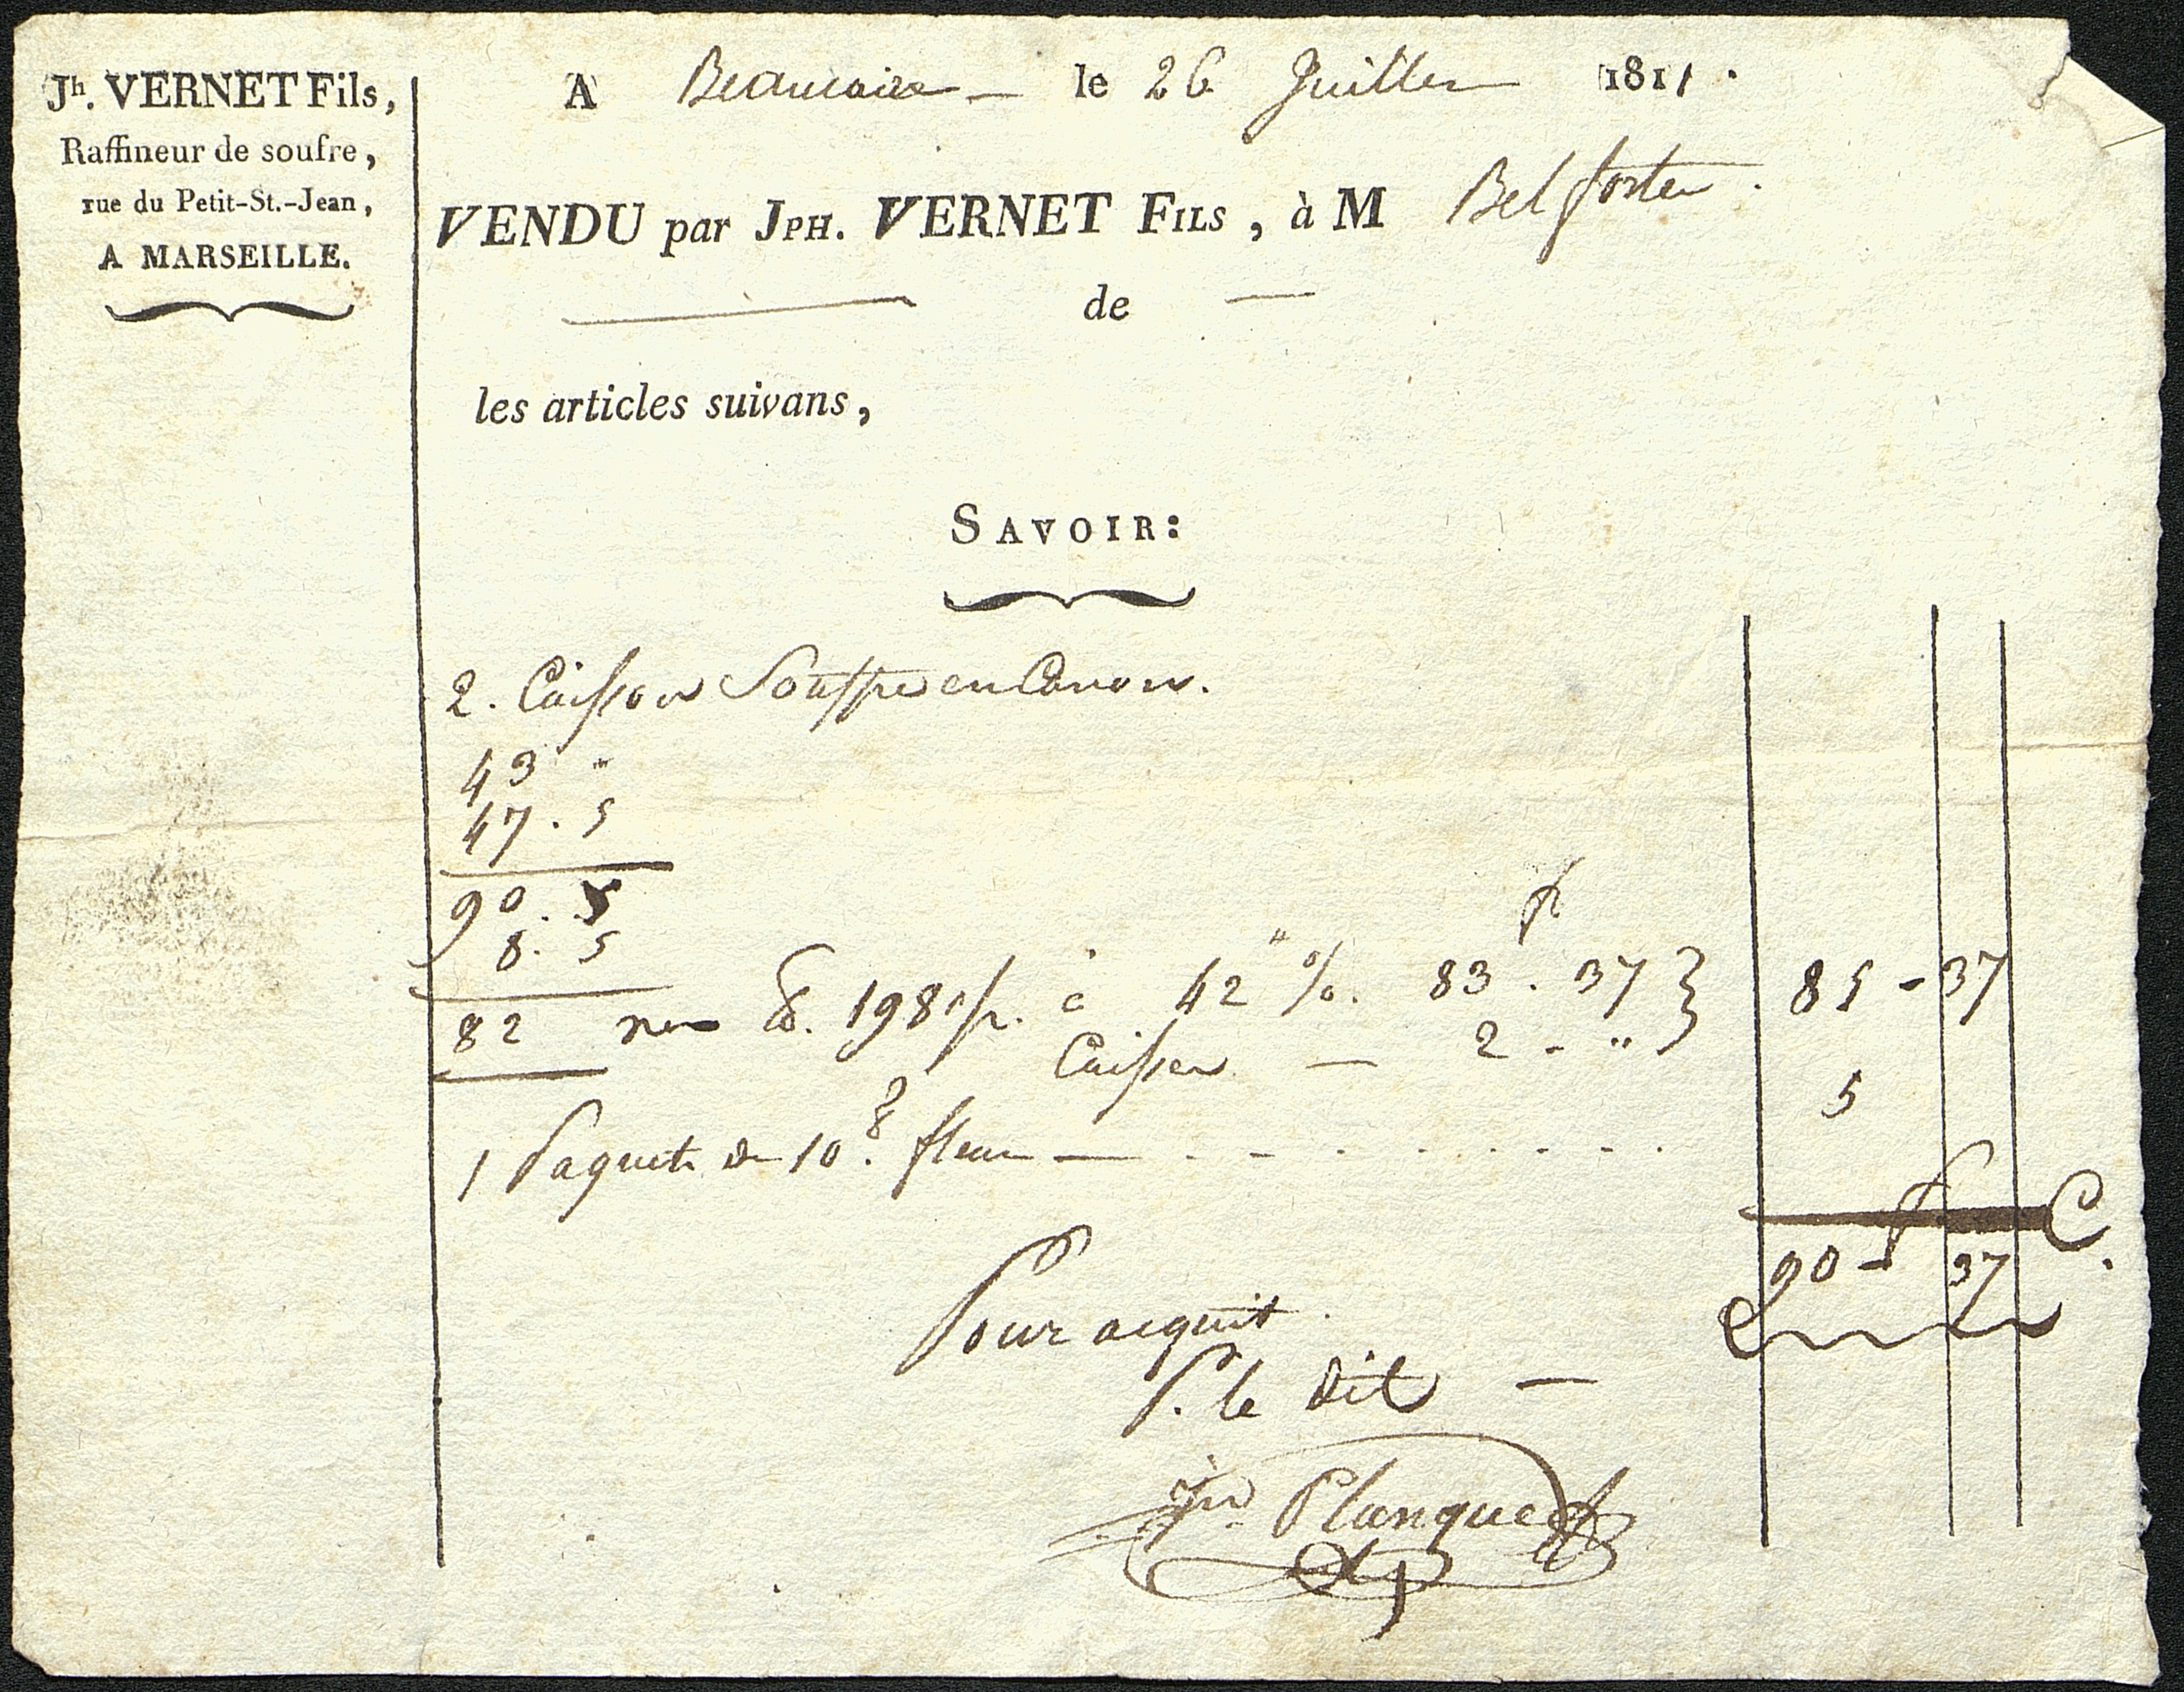 Jh. VERNET Fils,
Raffineur de soufre,
rue du Petit-St.-Jean,
A MARSEILLE.
A Beaucaire le 26 Juillet 1811.
VENDU par JPH. VERNET FILS, à M Belforter.
de
les articles suivans,
SAVOIR:
2. Caisson Souffre en Canon.
43 "
47 . 5
90 . 5
8 . 5
82 à 42 " %. 83 . 37 } 85 - 37
Caisses — 2 - "
1 Paquet de 10 fleur — 5
f C
90 - 37.
Pour acquit.
P. le dit —
Planque